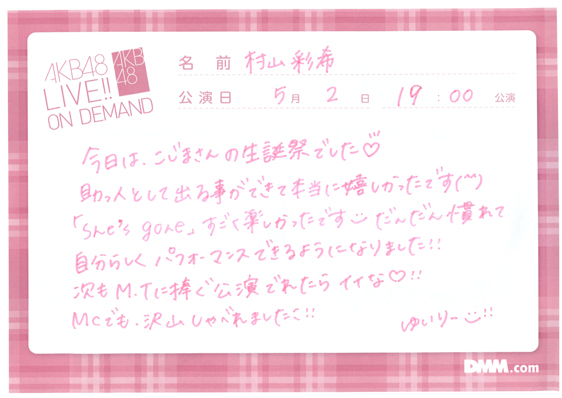 AKB48
LIVE!!
ON DEMAND
AKB
48
名 前 村山彩希
公演日 5月 2日 19:00 公演
今日は、こじまさんの生誕祭でした♡
助っ人として出る事ができて本当に嬉しかったです(^^)
「She's gone」すごく楽しかったです だんだん慣れて
自分らしく パフォーマンスできるようになりました!!
次もM.Tに捧ぐ公演でれたら イイな♡!!
MCでも、沢山しゃべれました!!
ゆいりー!!
DMM.com